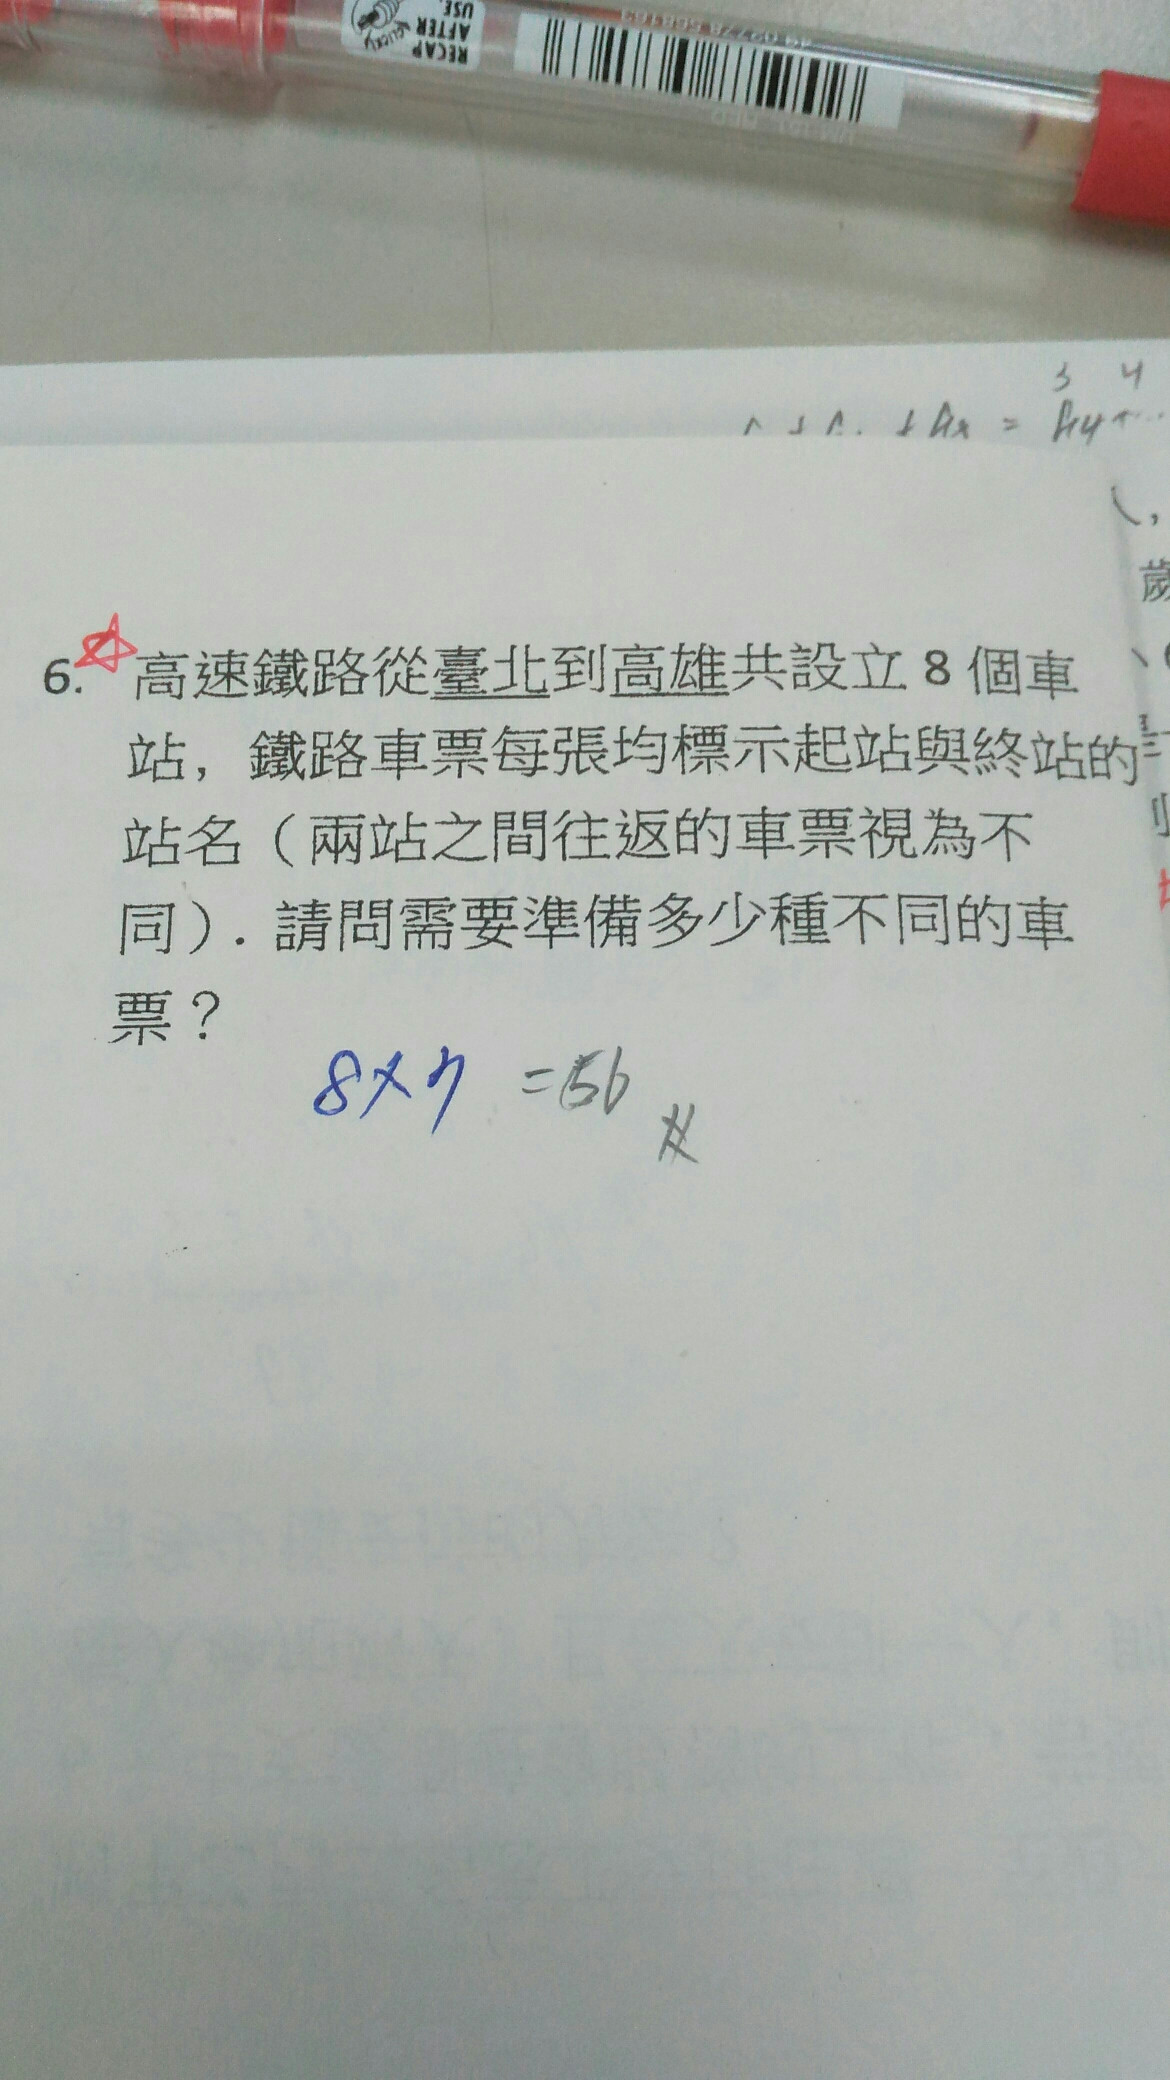 RECAP
AFTER
USE.
CLICK!
3 4
6. 高速鐵路從臺北到高雄共設立 8 個車
站，鐵路車票每張均標示起站與終站的
站名（兩站之間往返的車票視為不
同）. 請問需要準備多少種不同的車
票？
8×7 =56